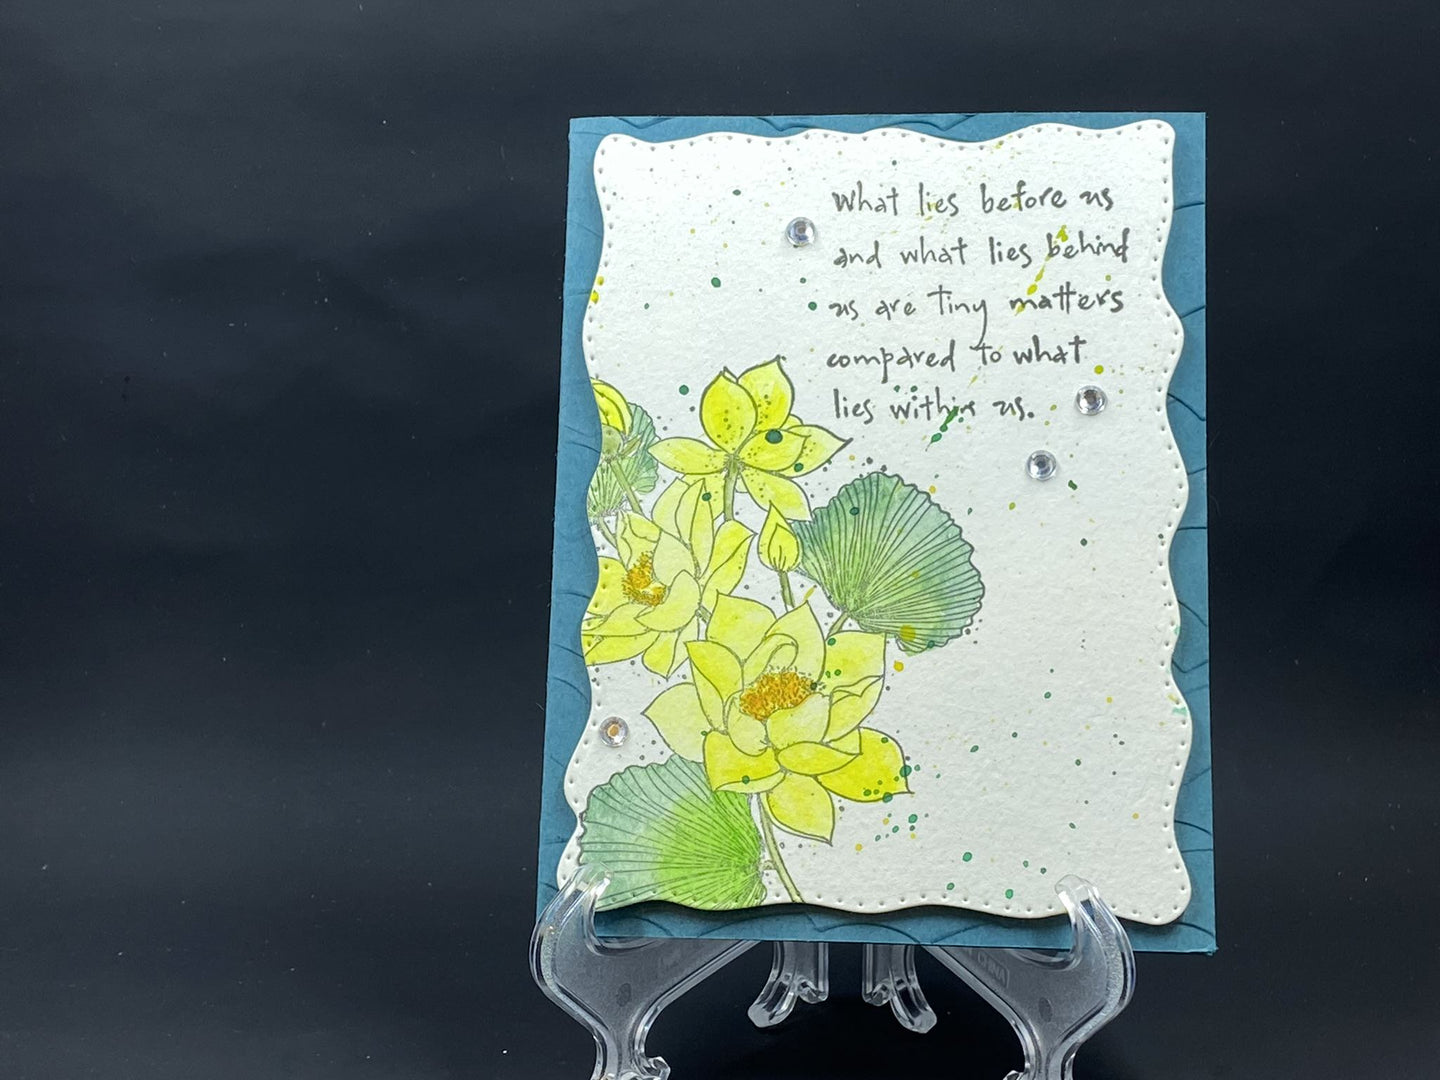 What lies before us
and what lies behind
us are tiny matters
compared to what
lies within us.
CHINA